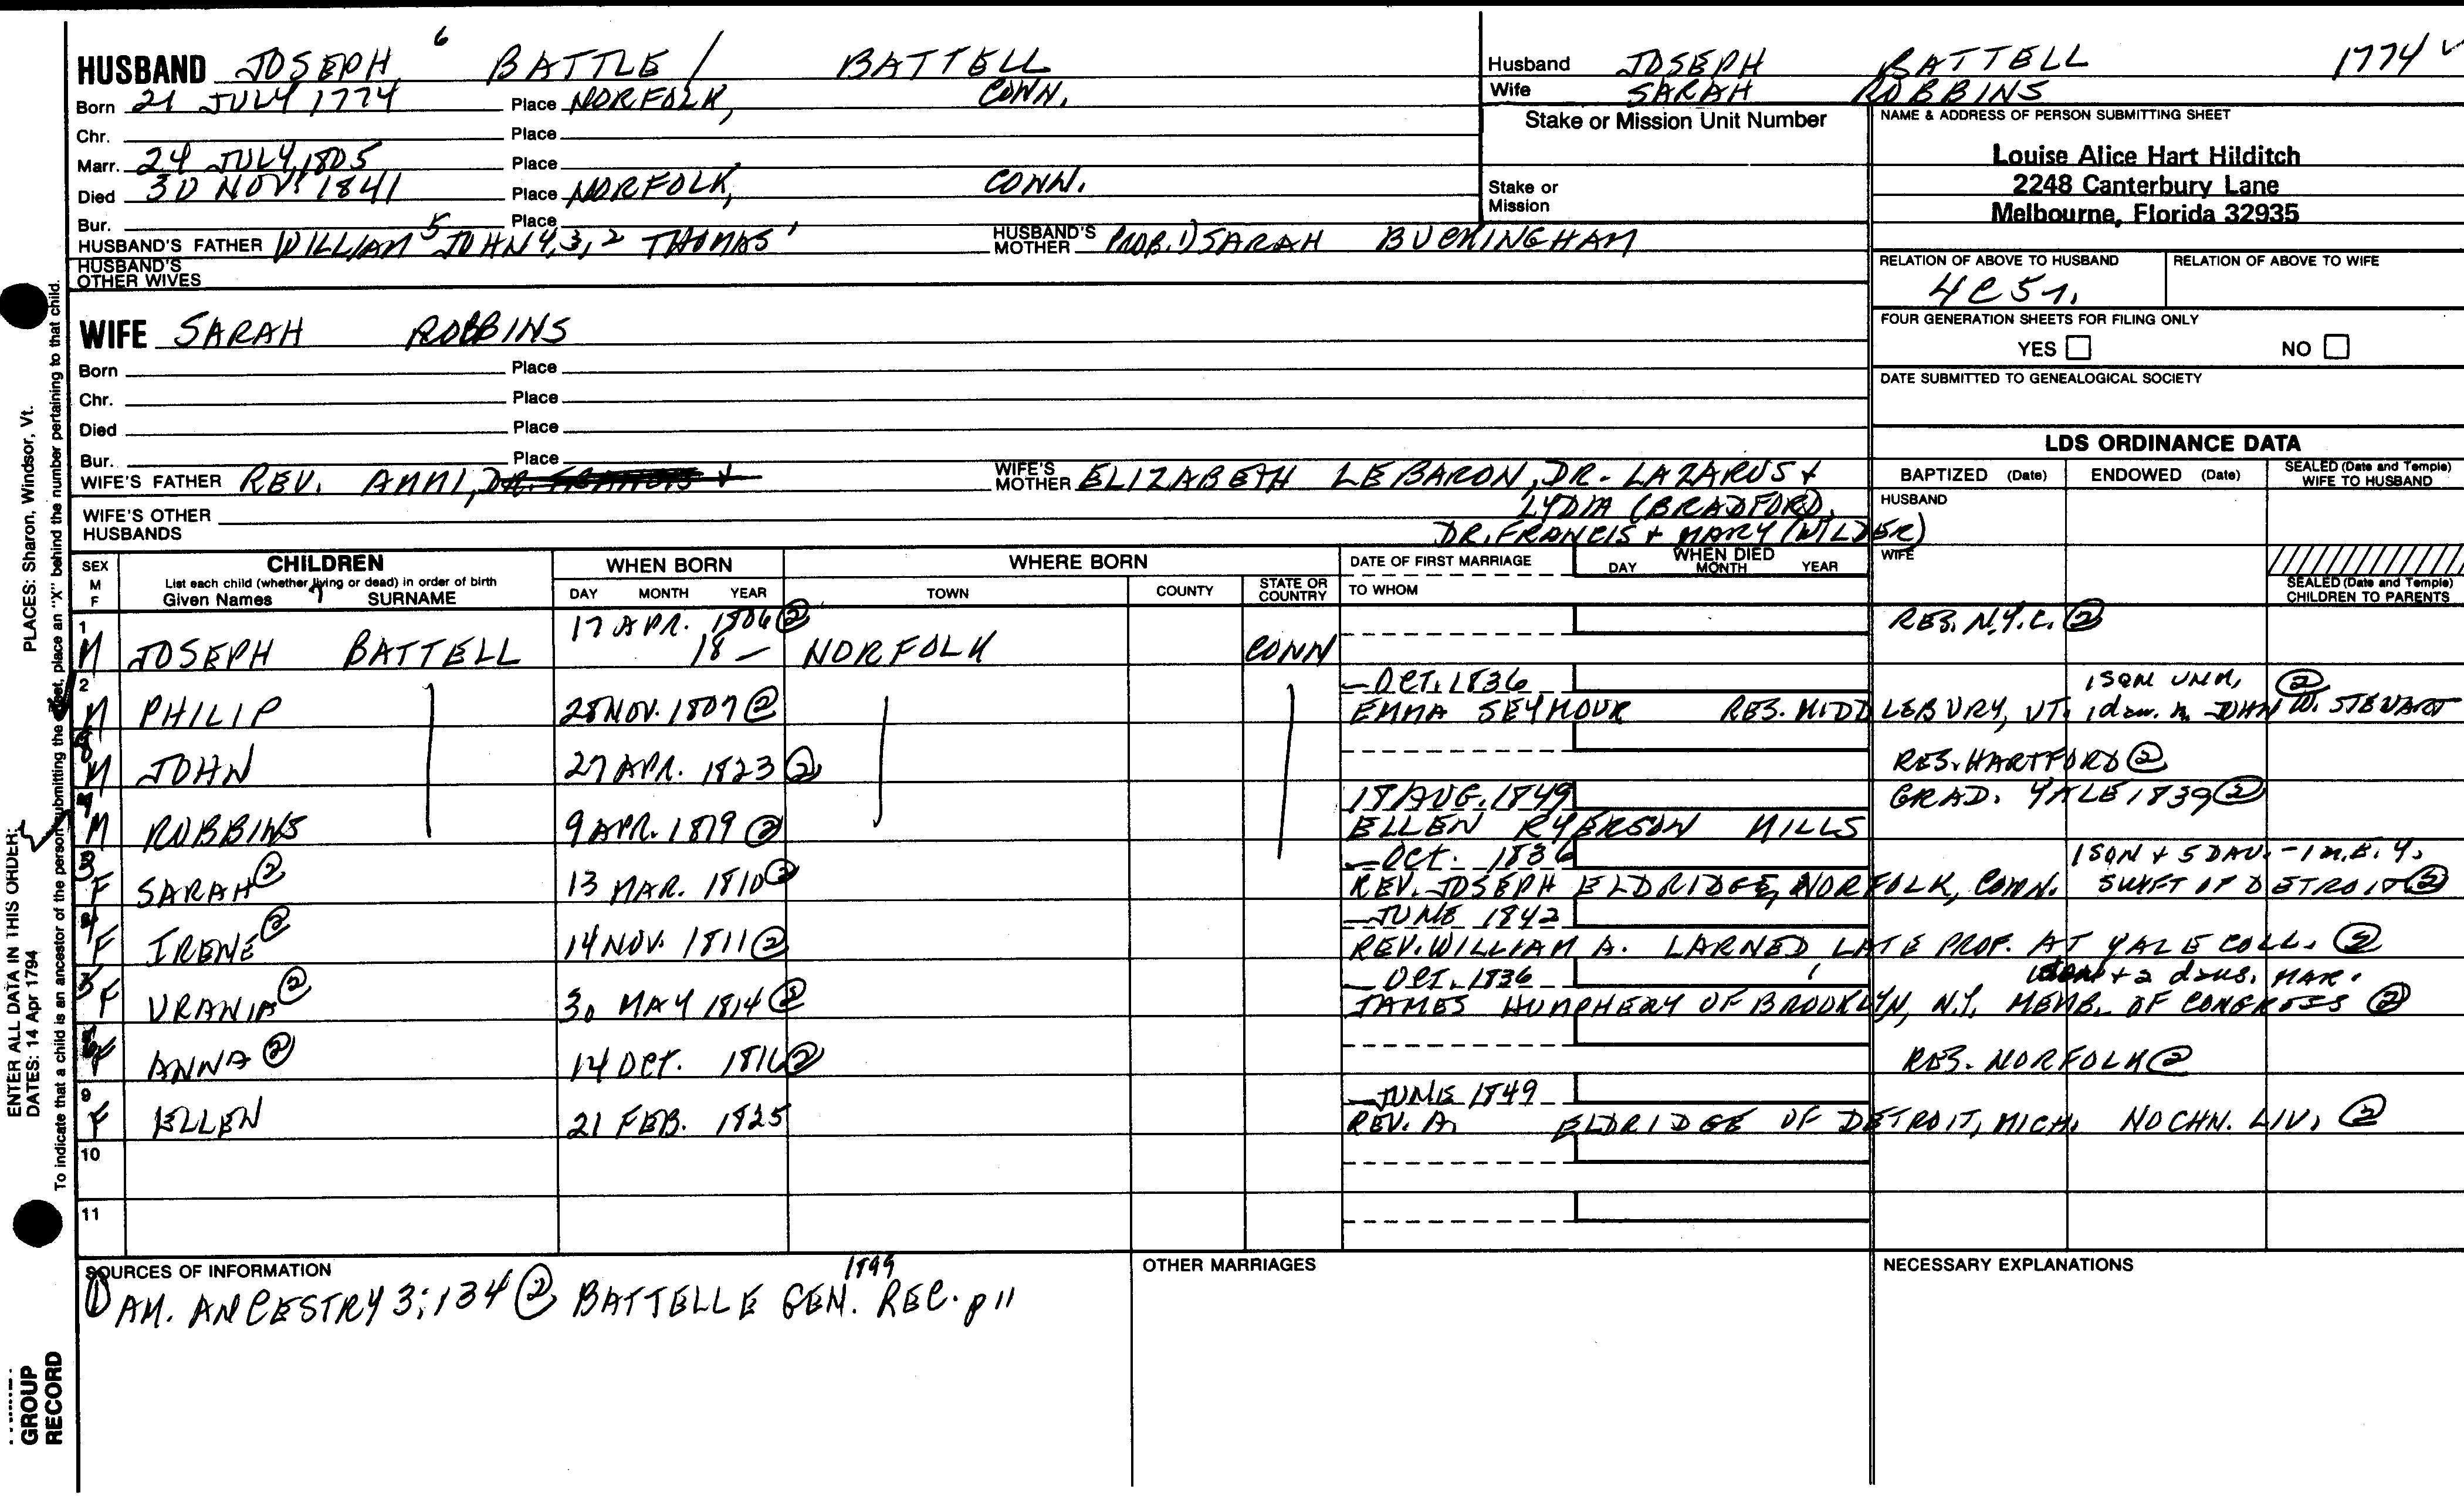 HUSBAND JOSEPH 6 BATTLE / BATTELL
Born 21 JULY 1774 Place NORFOLK, CONN.
Chr. Place
Marr. 24 JULY 1805 Place
Died 30 NOV. 1841 Place NORFOLK, CONN.
Bur. Place
HUSBAND'S FATHER WILLIAM 5 JOHN 4,3,2 THOMAS 1 HUSBAND'S MOTHER PROB. 1) SARAH BUCKINGHAM
HUSBAND'S OTHER WIVES
Husband JOSEPH BATTELL 1774 ✓
Wife SARAH ROBBINS
Stake or Mission Unit Number
Stake or Mission
NAME & ADDRESS OF PERSON SUBMITTING SHEET
Louise Alice Hart Hilditch
2248 Canterbury Lane
Melbourne, Florida 32935
RELATION OF ABOVE TO HUSBAND RELATION OF ABOVE TO WIFE
4C5r.
FOUR GENERATION SHEETS FOR FILING ONLY
YES NO
DATE SUBMITTED TO GENEALOGICAL SOCIETY
WIFE SARAH ROBBINS
Born Place
Chr. Place
Died Place
Bur. Place
WIFE'S FATHER REV. AMMI, DR. FRANCIS + WIFE'S MOTHER ELIZABETH LEBARON, DR. LAZARUS +
LYDIA (BRADFORD),
WIFE'S OTHER HUSBANDS DR. FRANCIS + MARY (WILDER)
LDS ORDINANCE DATA
BAPTIZED (Date) ENDOWED (Date) SEALED (Date and Temple) WIFE TO HUSBAND
HUSBAND
WIFE
SEALED (Date and Temple) CHILDREN TO PARENTS
SEX M F CHILDREN List each child (whether living or dead) in order of birth Given Names SURNAME WHEN BORN DAY MONTH YEAR WHERE BORN TOWN COUNTY STATE OR COUNTRY DATE OF FIRST MARRIAGE TO WHOM WHEN DIED DAY MONTH YEAR
1 17 APR. 1806 ② RES. N.Y.C. ②
M JOSEPH BATTELL 18 — NORFOLK CONN
2 — OCT. 1836 1 SON UNM, ②
M PHILIP 28 NOV. 1807 ② EMMA SEYMOUR RES. MIDDLEBURY, VT. 1 dau. m. JOHN W. STEWART
8 M JOHN 27 APR. 1823 ② RES. HARTFORD ②
7 18 AUG. 1849 GRAD. YALE 1839 ②
M ROBBINS 9 APR. 1819 ② ELLEN RYERSON MILLS
3 — OCT. 1836 1 SON + 5 DAU. - 1 m. E. Y.
F SARAH ② 13 MAR. 1810 ② REV. JOSEPH ELDRIDGE, NORFOLK, CONN. SWIFT OF DETROIT ②
4 — JUNE 1842
F IRENE ② 14 NOV. 1811 ② REV. WILLIAM A. LARNED LATE PROF. AT YALE COLL. ②
5 — OCT. 1836 + 2 daus. MAR.
F URANIA ② 30 MAY 1814 ② JAMES HUMPHERY OF BROOKLYN, N.Y. MEMB. OF CONGRESS ②
6 F ANNA ② 14 OCT. 1816 ② RES. NORFOLK ②
9 — JUNE 1849
F ELLEN 21 FEB. 1825 REV. A. ELDRIDGE OF DETROIT, MICH. NO CHN. LIV. ②
10
11
SOURCES OF INFORMATION OTHER MARRIAGES NECESSARY EXPLANATIONS
1899
① AM. ANCESTRY 3:134 ② BATTELLE GEN. REC. p 11
PLACES: Sharon, Windsor, Vt.
ENTER ALL DATA IN THIS ORDER:
DATES: 14 Apr 1794
To indicate that a child is an ancestor of the person submitting the sheet, place an "X" behind the number pertaining to that child.
GROUP
RECORD